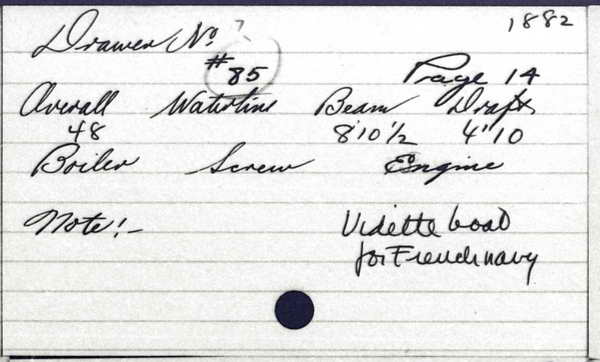 1882
Drawer No. ?
#85
Page 14
Overall Waterline Beam Draft
48 8'10 1/2 4"10
Boiler Screw Engine
Note:- Vidette boat
for French navy